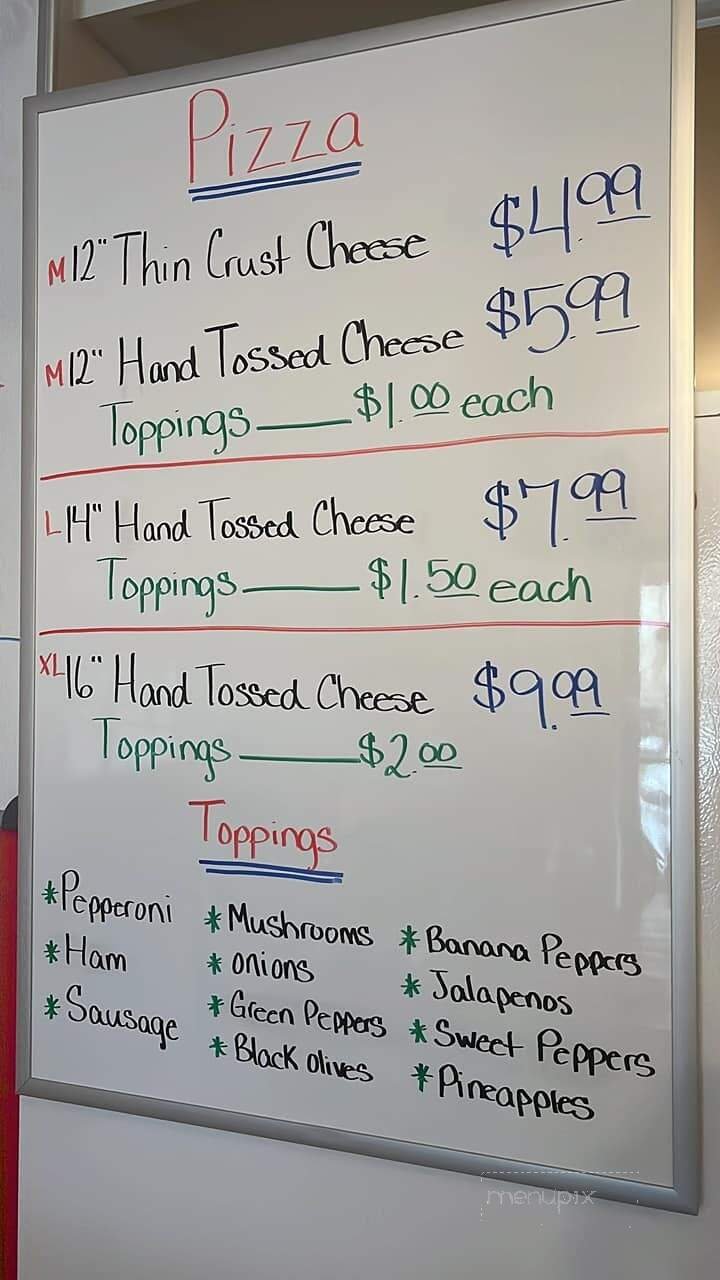 Pizza
M 12" Thin Crust Cheese $4.99
M 12" Hand Tossed Cheese $5.99
Toppings $1.00 each
L 14" Hand Tossed Cheese $7.99
Toppings $1.50 each
XL 16" Hand Tossed Cheese $9.99
Toppings $2.00
Toppings
* Pepperoni
* Ham
* Sausage
* Mushrooms
* onions
* Green Peppers
* Black olives
* Banana Peppers
* Jalapenos
* Sweet Peppers
* Pineapples
menupix